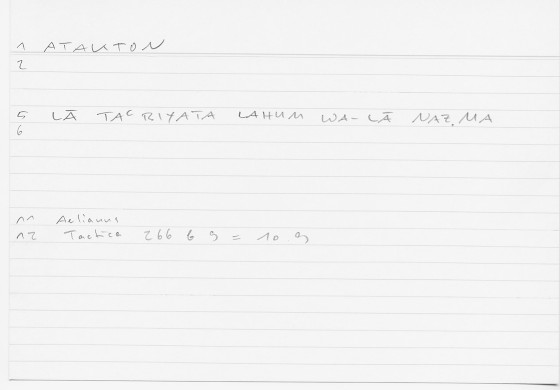 1 ATAKTON
2
5 LĀ TAʿBIYATA LAHUM WA-LĀ NAẒMA
6
11 Aelianus
12 Tactica 266 b 9 = 10 9